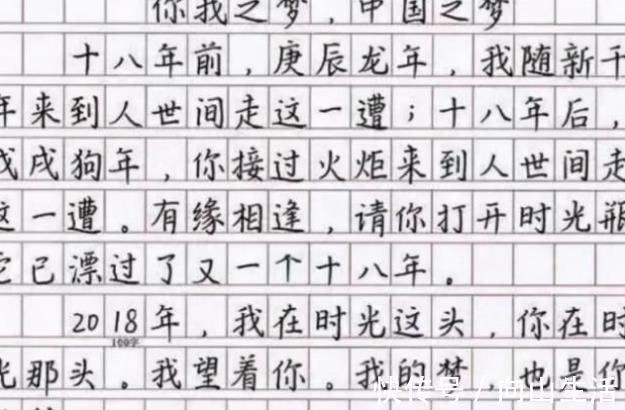 你我之梦，中国之梦
十八年前，庚辰龙年，我随新千
年来到人世间走这一遭；十八年后，
戊戌狗年，你接过火炬来到人世间走
这一遭。有缘相逢，请你打开时光瓶
它已漂过了又一个十八年。
2018年，我在时光这头，你在时
100字
光那头。我望着你。我的梦，也是你
快传号/向山生活